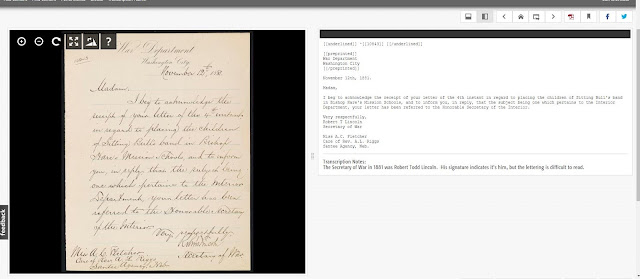 War Department
Washington City
November 12th, 1881.
Madam,
I beg to acknowledge the
receipt of your letter of the 4th instant
in regard to placing the children
of Sitting Bull's band in Bishop
Hare's Mission Schools, and to inform
you, in reply, that the subject being
one which pertains to the Interior
Department, your letter has been
referred to the Honorable Secretary
of the Interior.
Very respectfully,
Secretary of War
Miss A. C. Fletcher
Care of Rev. A. L. Riggs
Santee Agency, Neb.
feedback
[[preprinted]]
War Department
Washington City
[[/preprinted]]
November 12th, 1881.
Madam,
I beg to acknowledge the receipt of your letter of the 4th instant in regard to placing the children of Sitting Bull's band
in Bishop Hare's Mission Schools, and to inform you, in reply, that the subject being one which pertains to the Interior
Department, your letter has been referred to the Honorable Secretary of the Interior.
Very respectfully,
Robert T Lincoln
Secretary of War
Miss A.C. Fletcher
Care of Rev. A.L. Riggs
Santee Agency, Neb.
Transcription Notes:
The Secretary of War in 1881 was Robert Todd Lincoln. His signature indicates it's him, but the lettering is difficult to read.